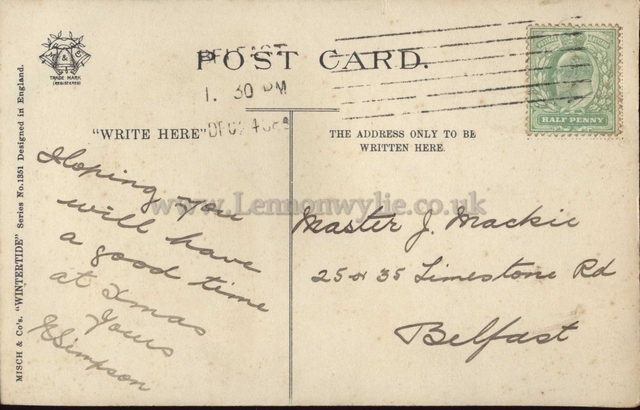 POST CARD.
BELFAST
1. 30 PM
M & B
TRADE MARK
"WRITE HERE"
THE ADDRESS ONLY TO BE
WRITTEN HERE.
HALF PENNY
MISCH & Co's. "WINTERTIDE" Series No.1351 Designed in England.
www.Lennonwylie.co.uk
Hoping you
will have
a good time
at Xmas
Yours
Simpson
Master J. Mackie
25 or 35 Limestone Rd
Belfast